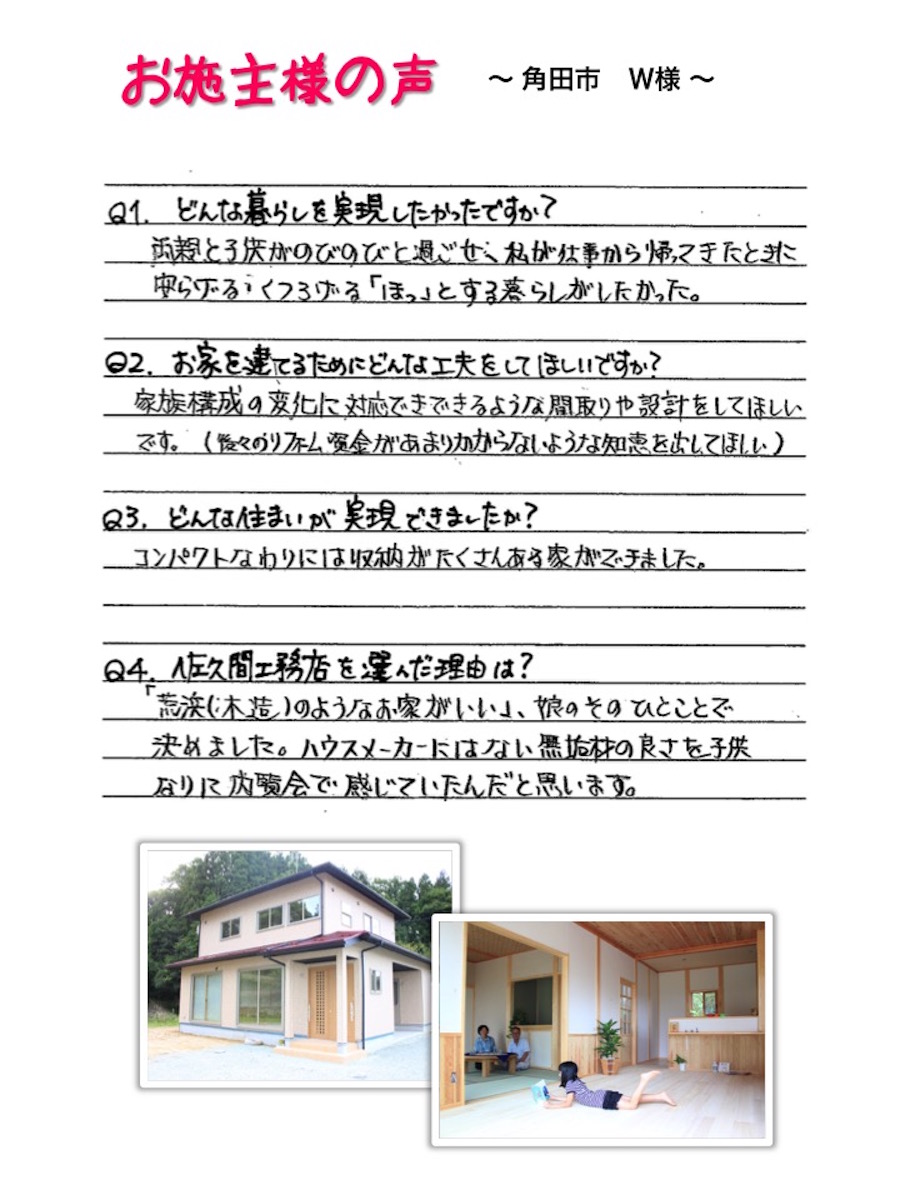 お施主様の声 ～ 角田市 W様 ～
Q1. どんな暮らしを実現したかったですか?
両親と子供がのびのびと過ごせ、私が仕事から帰ってきたときに
安らげる・くつろげる「ほっ」とする暮らしがしたかった。
Q2. お家を建てるためにどんな工夫をしてほしいですか?
家族構成の変化に対応できできるような間取りや設計をしてほしい
です。(後々のリフォーム資金があまりかからないような知恵を出してほしい)
Q3. どんな住まいが実現できましたか?
コンパクトなわりには収納がたくさんある家ができました。
Q4. 佐久間工務店を選んだ理由は?
「荒浜(木造)のようなお家がいい」、娘のそのひとことで
決めました。ハウスメーカーにはない無垢材の良さを子供
なりに内覧会で感じていたんだと思います。